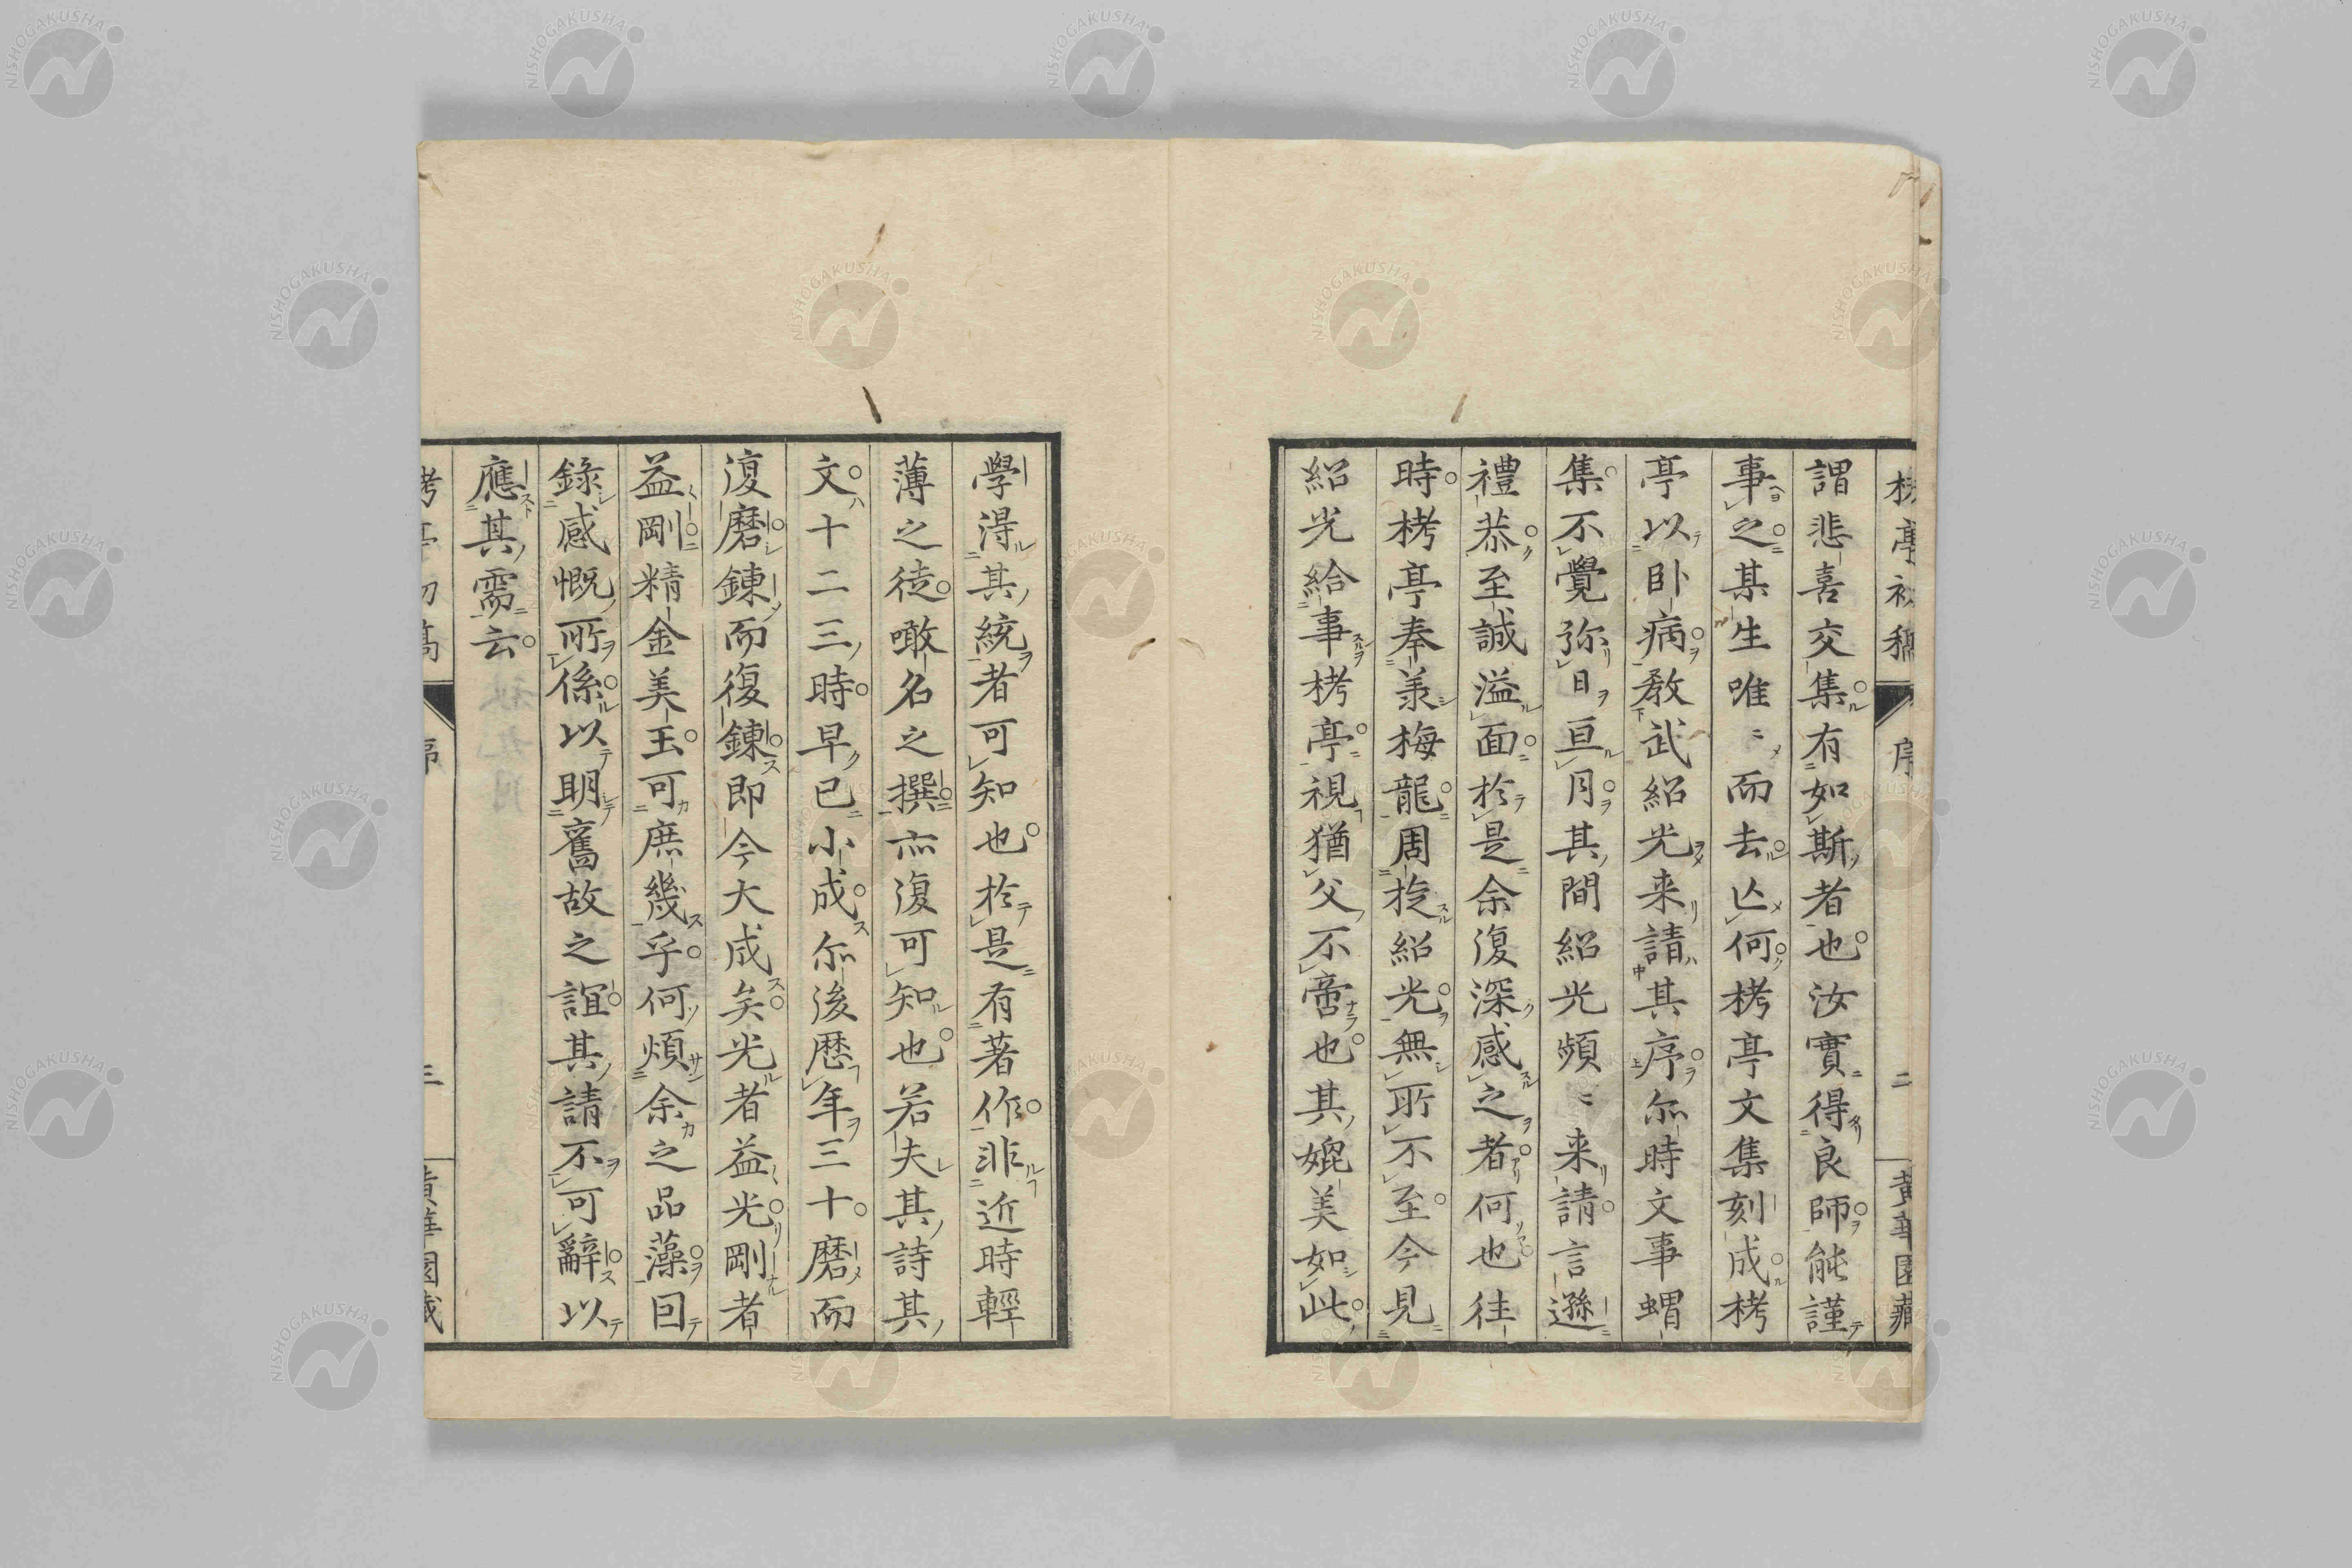 栲亭初稿 序 二 黄華園藏
謂悲喜交集有如斯者也汝實得良師能謹
事之某生唯〻而去亾何栲亭文集刻成栲
亭以臥病教武紹光来請其序尓時文事蝟
集不覺弥日亘月其間紹光頻〻来請言遜
禮恭至誠溢面於是余復深感之者何也徃
時栲亭奉羕梅龍周旋紹光無所不至今見
紹光給事栲亭視猶父不啻也其媲美如此
學淂其統者可知也於是有著作非近時輕
薄之徒噉名之撰亦復可知也若夫其詩其
文十二三時早已小成尓後歴年三十磨而
復磨鍊而復鍊即今大成矣光者益光剛者
益剛精金美玉可庶幾乎何煩余之品藻囙
錄感慨所係以明舊故之誼其請不可辭以
應其需云
栲亭初稿 序 三 黄華園藏